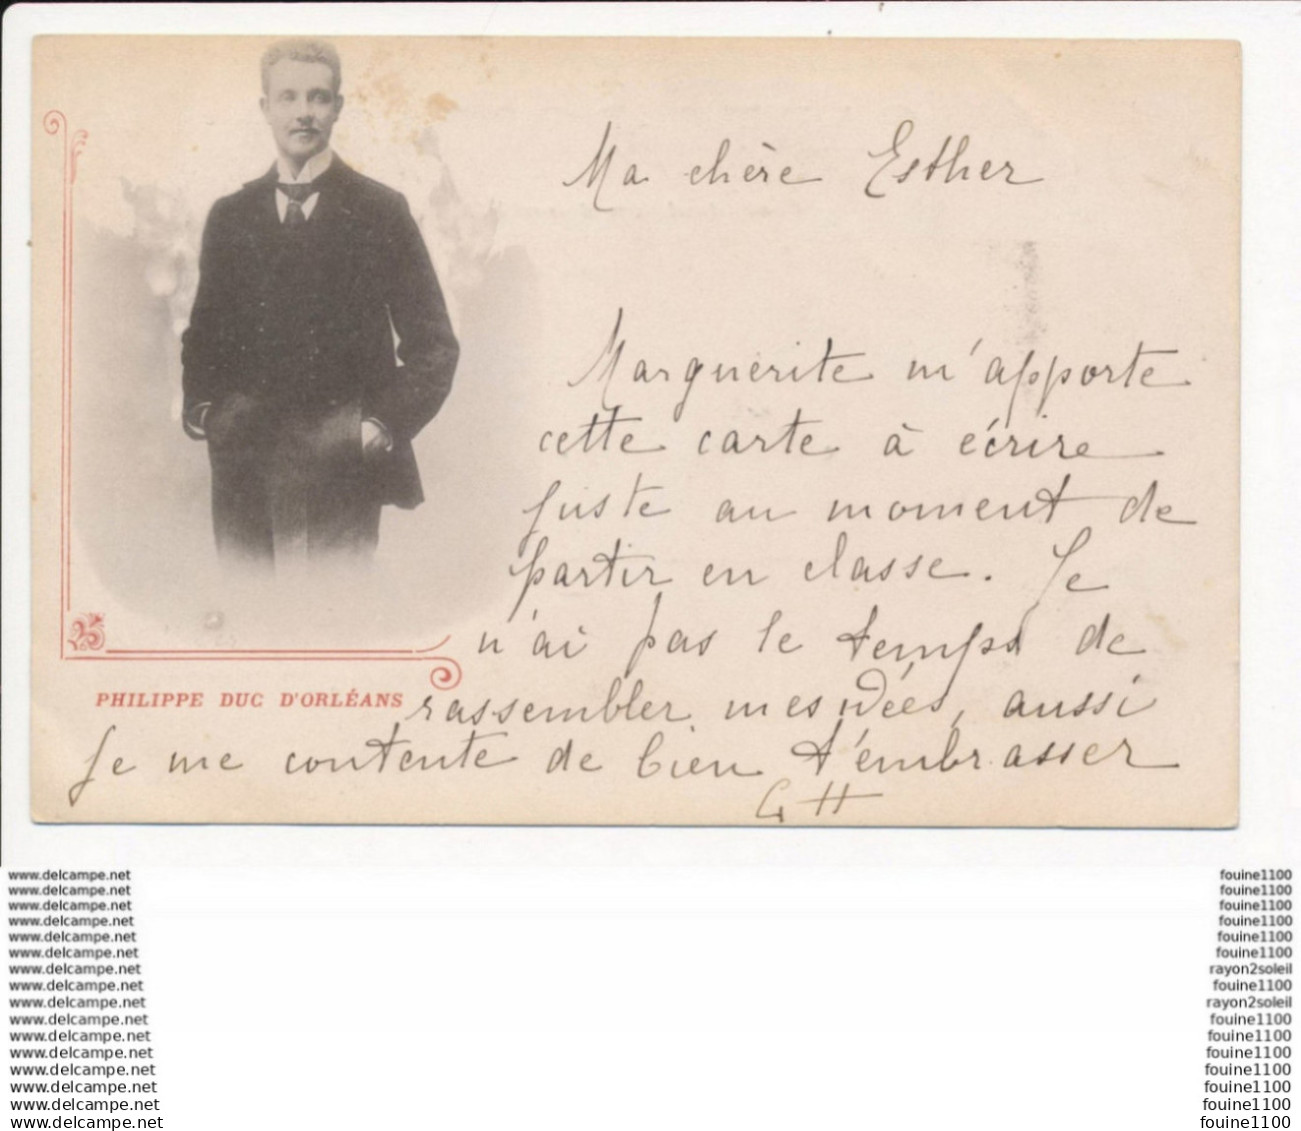 Ma chère Esther
Marguerite m'apporte
cette carte à écrire
juste au moment de
partir en classe. Je
n'ai pas le temps de
PHILIPPE DUC D'ORLÉANS
rassembler mes idées, aussi
je me contente de bien t'embrasser
G H
www.delcampe.net fouine1100
www.delcampe.net fouine1100
www.delcampe.net fouine1100
www.delcampe.net fouine1100
www.delcampe.net fouine1100
www.delcampe.net fouine1100
www.delcampe.net rayon2soleil
www.delcampe.net fouine1100
www.delcampe.net rayon2soleil
www.delcampe.net fouine1100
www.delcampe.net fouine1100
www.delcampe.net fouine1100
www.delcampe.net fouine1100
www.delcampe.net fouine1100
www.delcampe.net fouine1100
www.delcampe.net fouine1100